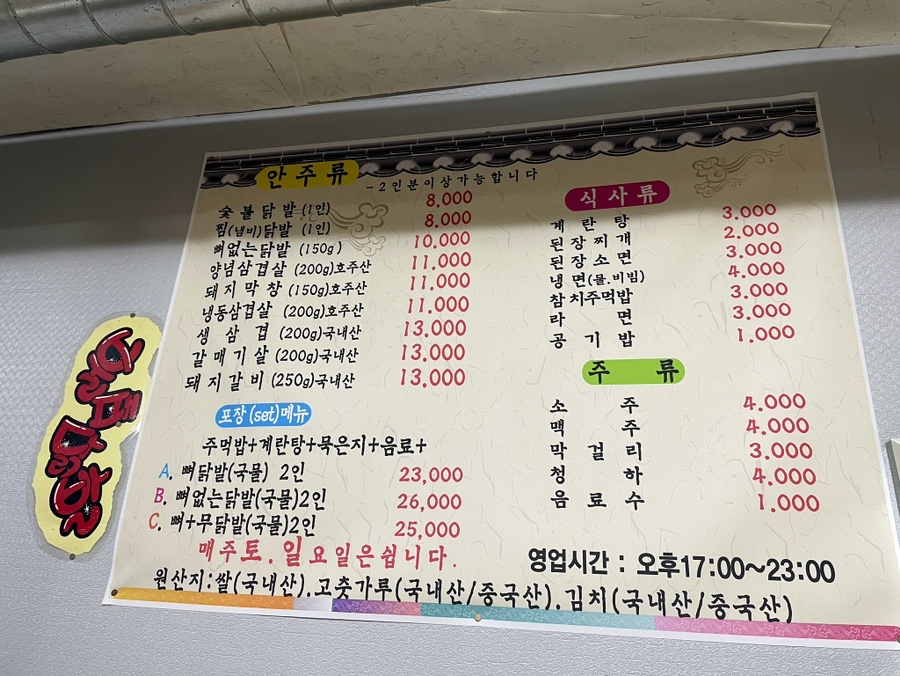 안주류 -2인분이상가능합니다
숯불닭발(1인) 8,000
찜(냄비)닭발 (1인) 8,000
뼈없는닭발 (150g) 10,000
양념삼겹살 (200g)호주산 11,000
돼지막창 (150g)호주산 11,000
냉동삼겹살 (200g)호주산 11,000
생삼겹 (200g)국내산 13,000
갈매기살 (200g)국내산 13,000
돼지갈비 (250g)국내산 13,000
포장(set)메뉴
주먹밥+계란탕+묵은지+음료+
A. 뼈닭발(국물) 2인 23,000
B. 뼈없는닭발(국물)2인 26,000
C. 뼈+무닭발(국물)2인 25,000
매주토.일요일은쉽니다.
식사류
계란탕 3.000
된장찌개 2.000
된장소면 3.000
냉면(물.비빔) 4.000
참치주먹밥 3.000
라면 3.000
공기밥 1.000
주류
소주 4.000
맥주 4.000
막걸리 3.000
청하 4.000
음료수 1.000
영업시간 : 오후17:00~23:00
원산지:쌀(국내산).고춧가루(국내산/중국산).김치(국내산/중국산)